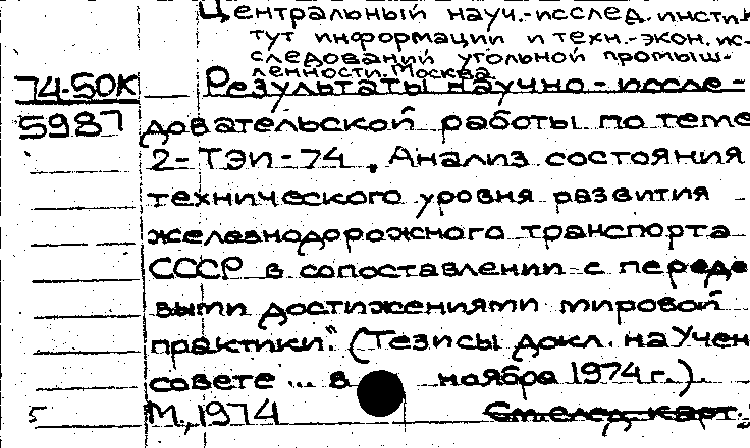 Центральный науч.-исслед. инсти-
тут информации и техн.-экон. ис-
следований угольной промыш-
ленности. Москва.
74-50К Результаты научно-иссле-
5987 довательской работы по теме
2-ТЭИ-74. Анализ состояния
технического уровня развития
железнодорожного транспорта
СССР в сопоставлении с передо
выми достижениями мировой
практики". (Тезисы докл. на Учен
совете ... в ноября 1974 г.).
5 М., 1974 См. след. карт.